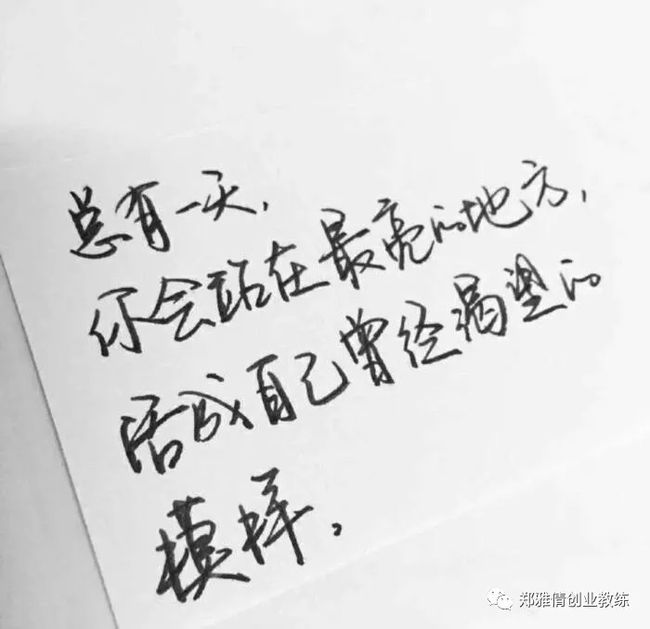 总有一天，
你会站在最亮的地方，
活成自己曾经渴望的
模样。
郑雅倩创业教练